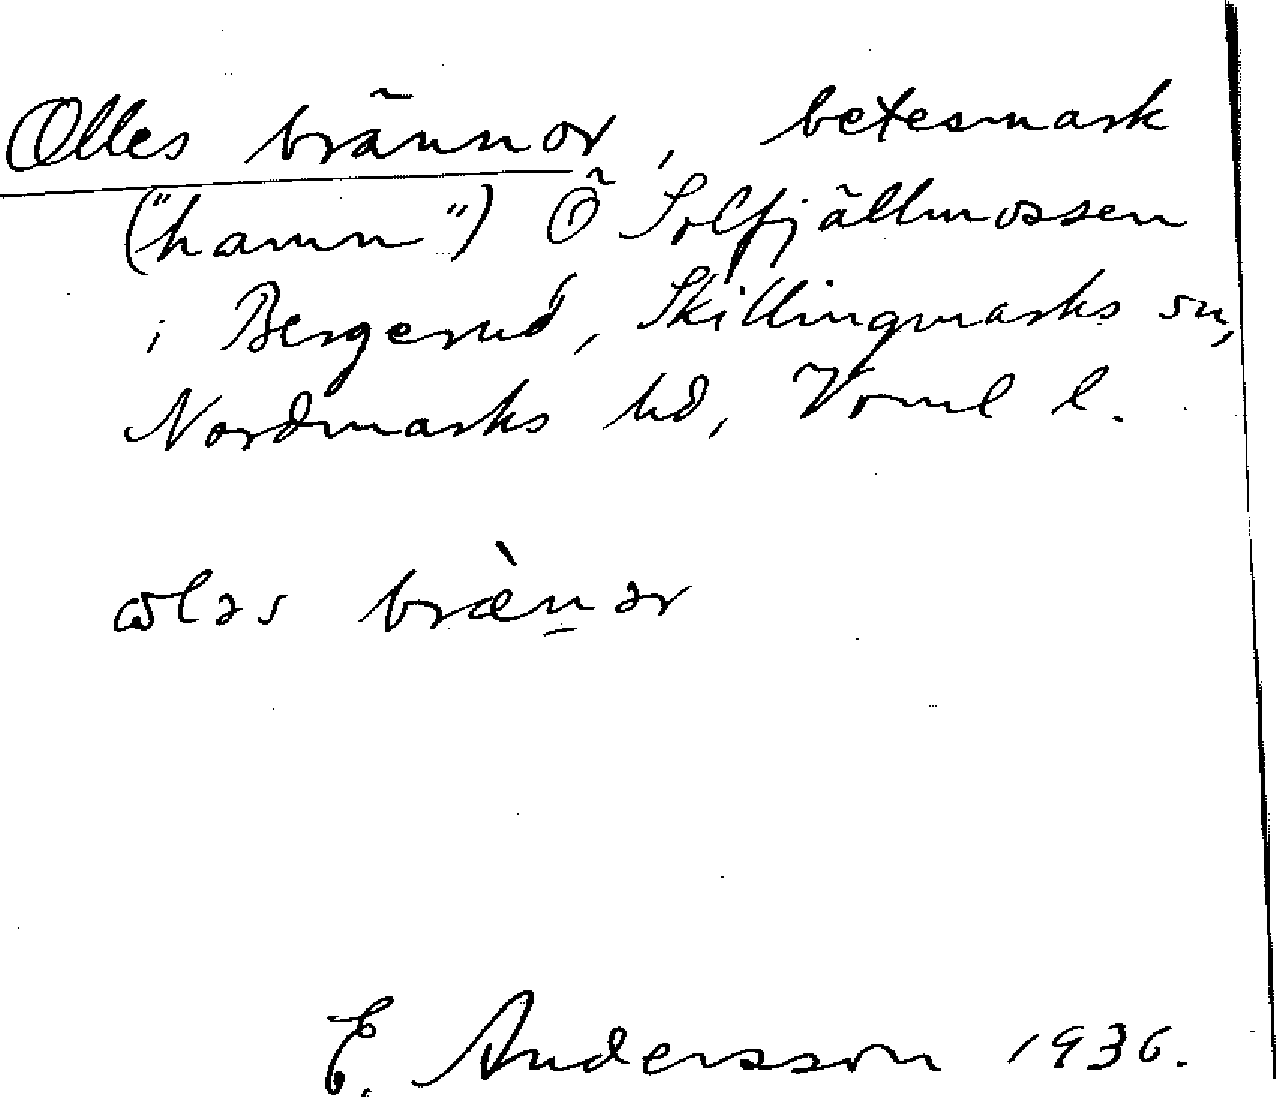 Olles brännor, betesmark
("hamn") Ö Solfjällmossen
i Bergerud, Skillingmarks sn,
Nordmarks hd, Verml l.
brænər
E. Andersson 1936.